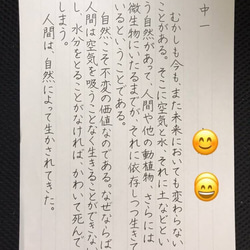 中一
むかしも今も、また未来においても変わらない
ことがある。そこに空気と水、それに土などとい
う自然があって、人間や他の動植物、さらには
微生物にいたるまでが、それに依存しつつ生きて
いるということである。
自然こそ不変の価値なのである。なぜならば
人間は空気を吸うことなく生きることができない
し、水分をとることがなければ、かわいて死んで
しまう。
人間は、自然によって生かされてきた。